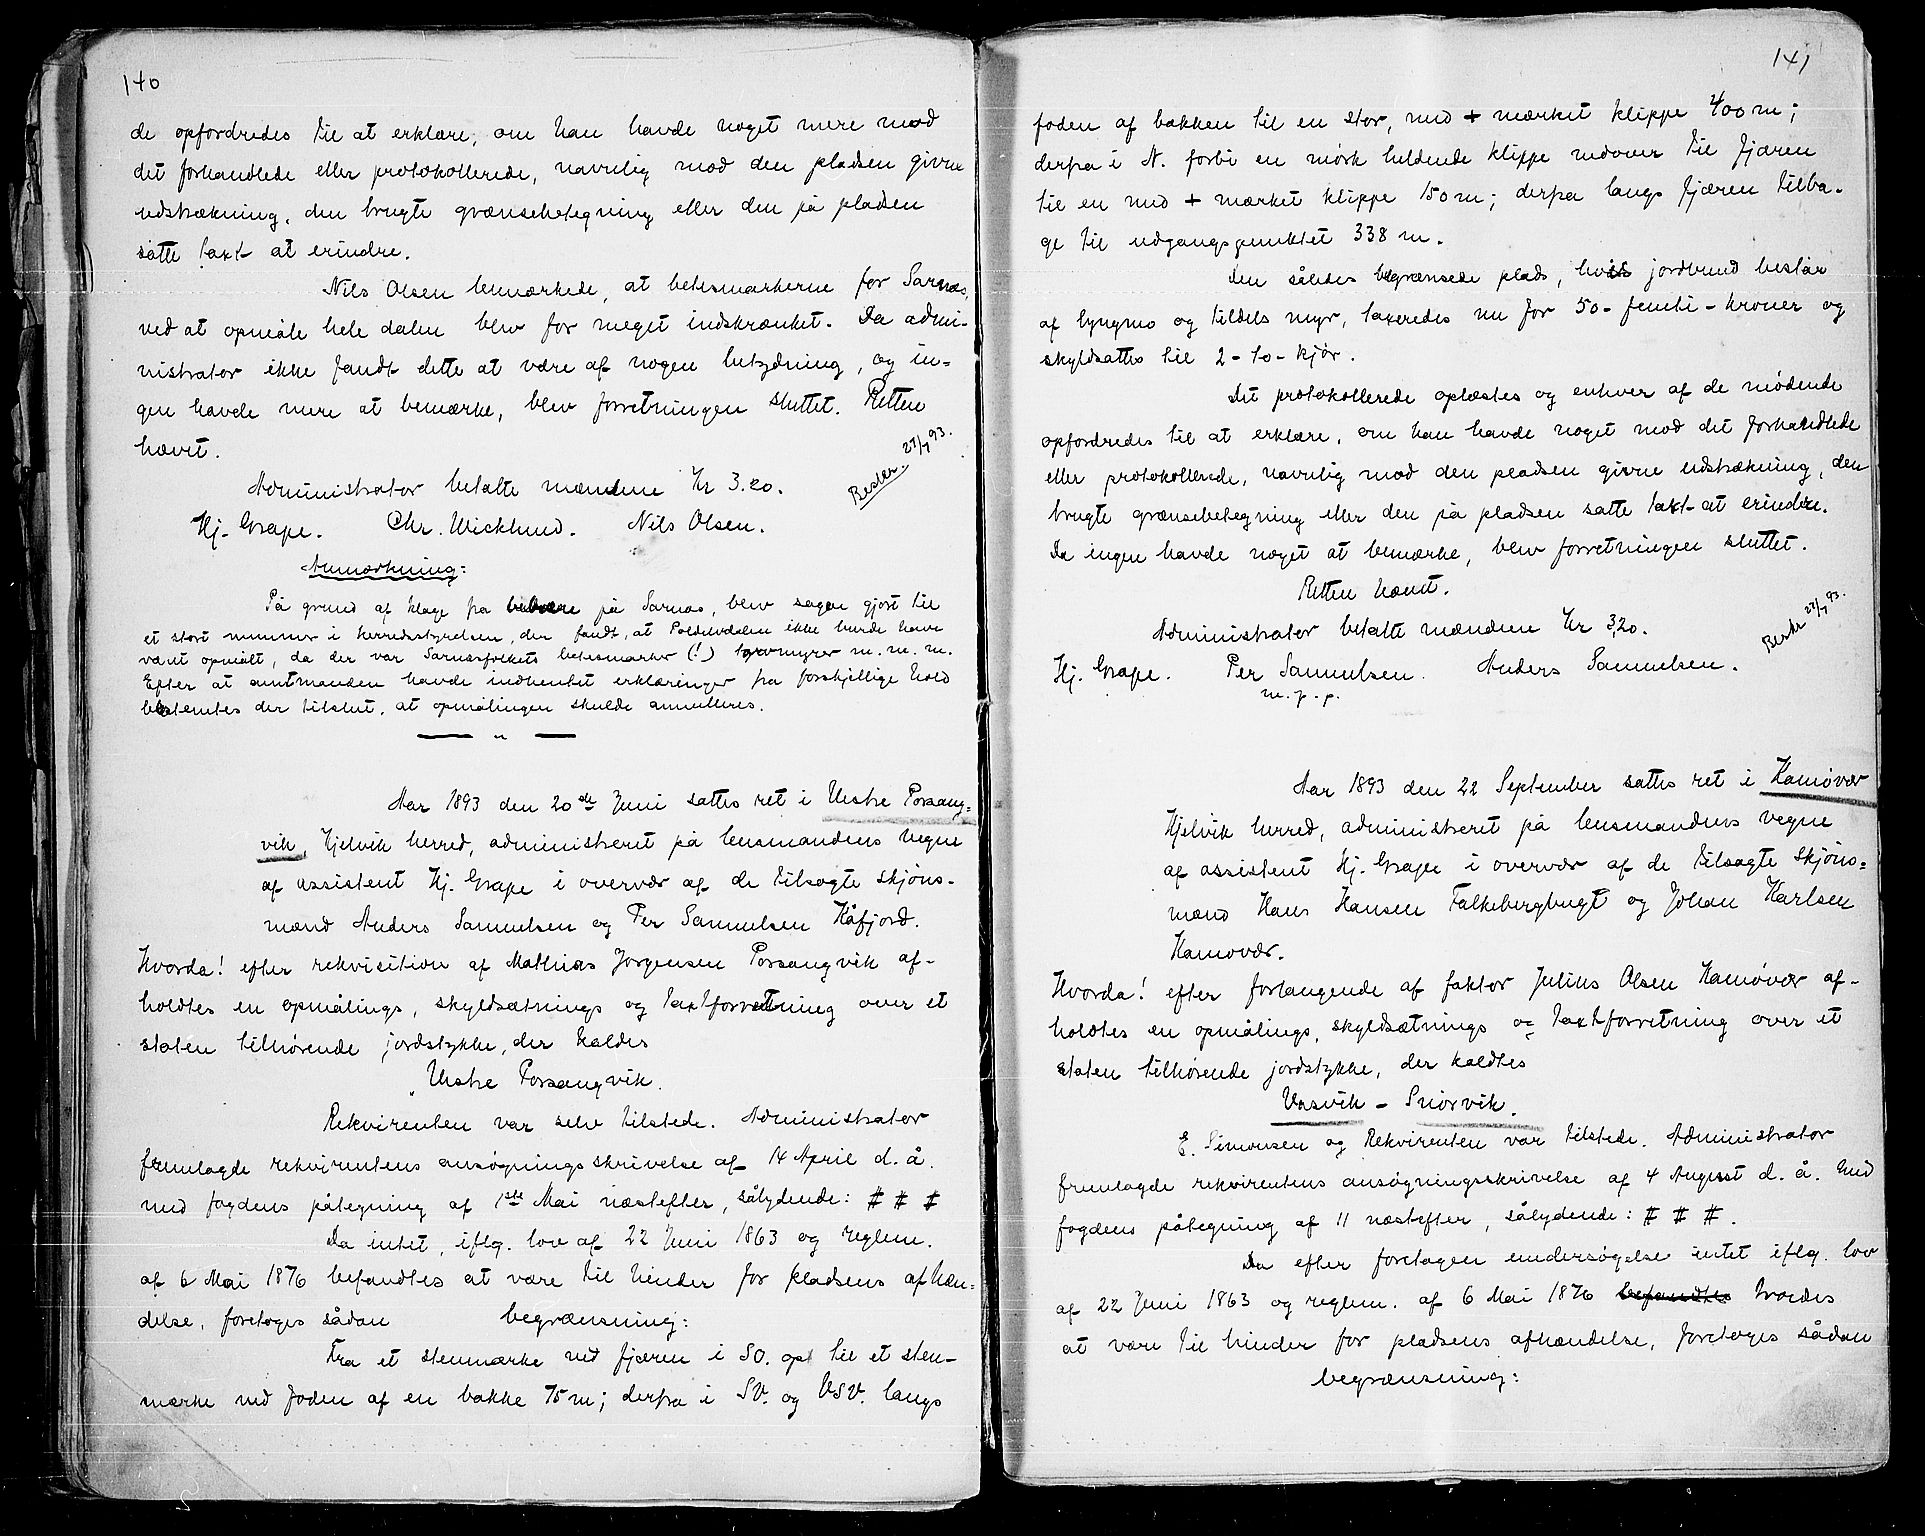 140
de opfordredes til at erklære, om han havde noget mere mod
det forhandlede eller protokollerede, navnlig mod den pladsen givne
udstrækning, den brugte grænsebetegning eller den på pladsen
satte takt at erindre.
Nils Olsen bemærkede, at betesmarkerne for Sarnæs,
ved at opmåle hele dalen blev for meget indskrænket. Da admi-
nistrator ikke fandt dette at være af nogen betydning, og in-
gen havde mere at bemærke, blev forretningen sluttet. Retten
hævet.
Beskr 27/7 93.
Administrator betalte mændene Kr 3.20.
Hj. Grape. Chr. Wicklund. Nils Olsen.
Anmærkning:
På grund af klage fra beboere på Sarnæs, blev sagen gjort til
et stort nummer i herredsstyrelsen, der fandt, at Poldelvdalen ikke burde have
været opmålt, da der var Sarnæsfolkets betesmarker (!) torvmyrer m. m. m.
Efter at amtmanden havde indhentet erklæringer fra forskjellige hold
bestemtes der tilslut, at opmålingen skulde annulleres.
— " —
Aar 1893 den 20de Juni sattes ret i Vestre Porsang=
vik, Kjelvik herred, administreret på lensmandens vegne
af assistent Hj. Grape i overvær af de tilsagte skjøns-
mænd Anders Samuelsen og Per Samuelsen Kåfjord.
Hvorda! efter rekvisition af Mathias Jørgensen Porsangvik af-
holdtes en opmålings, skyldsætnings og taktforretning over et
staten tilhørende jordstykke, der kaldes
Vestre Porsangvik.
Rekvirenten var selv tilstede. Administrator
fremlagde rekvirentens ansøgningsskrivelse af 14 April d. å.
med fogdens påtegning af 1ste Mai næstefter, sålydende: # # #
Da intet, iflg. lov af 22 Juni 1863 og reglem.
af 6 Mai 1876 befandtes at være til hinder for pladsens afhæn-
delse, foretoges sådan begrænsning:
Fra et stenmærke ved fjæren i SO. op til et sten-
mærke ved foden af en bakke 75 m; derfra i SV. og VSV. langs
141
foden af bakken til en stor, med + mærket klippe 400 m;
derfra i N. forbi en mørk heldende klippe nedover til fjæren
til en med + mærket klippe 150 m; derfra langs fjæren tilba-
ge til udgangspunktet 338 m.
Den således begrænsede plads, hvis jordbund består
af lyngmo og tildels myr, taxeredes nu for 50 - femti - kroner og
skyldsattes til 2 - to - kjør.
Det protokollerede oplæstes og enhver af de mødende
opfordredes til at erklære, om han havde noget mod det forhandlede
eller protokollerede, navnlig mod den pladsen givne udstrækning, den
brugte grænsebetegning eller den på pladsen satte takt at erindre.
Da ingen havde noget at bemærke, blev forretningen sluttet.
Retten hævet.
Beskr 27/7 93.
Administrator betalte mændene Kr 3,20.
Hj. Grape. Per Samuelsen. Anders Samuelsen.
m. f. p.
Aar 1893 den 22 September sattes ret i Kamøvær
Kjelvik herred, administreret på lensmandens vegne
af assistent Hj. Grape i overvær af de tilsagte skjøns=
mænd Hans Hansen Falkebergbugt og Johan Karlsen
Kamøvær.
Hvorda! efter forlangende af faktor Julius Olsen Kamøvær af-
holdtes en opmålings, skyldsætnings og taktforretning over et
staten tilhørende jordstykke, der kaldtes
Vasvik - Snørvik.
E. Simonsen og Rekvirenten var tilstede. Administrator
fremlagde rekvirentens ansøgningsskrivelse af 4 August d. å. med
fogdens påtegning af 11 næstefter, sålydende: # # #.
Da efter foretagen undersøgelse intet iflg. lov
af 22 Juni 1863 og reglem. af 6 Mai 1876 befandtes troedes
at være til hinder for pladsens afhændelse, foretoges sådan
begrænsning: